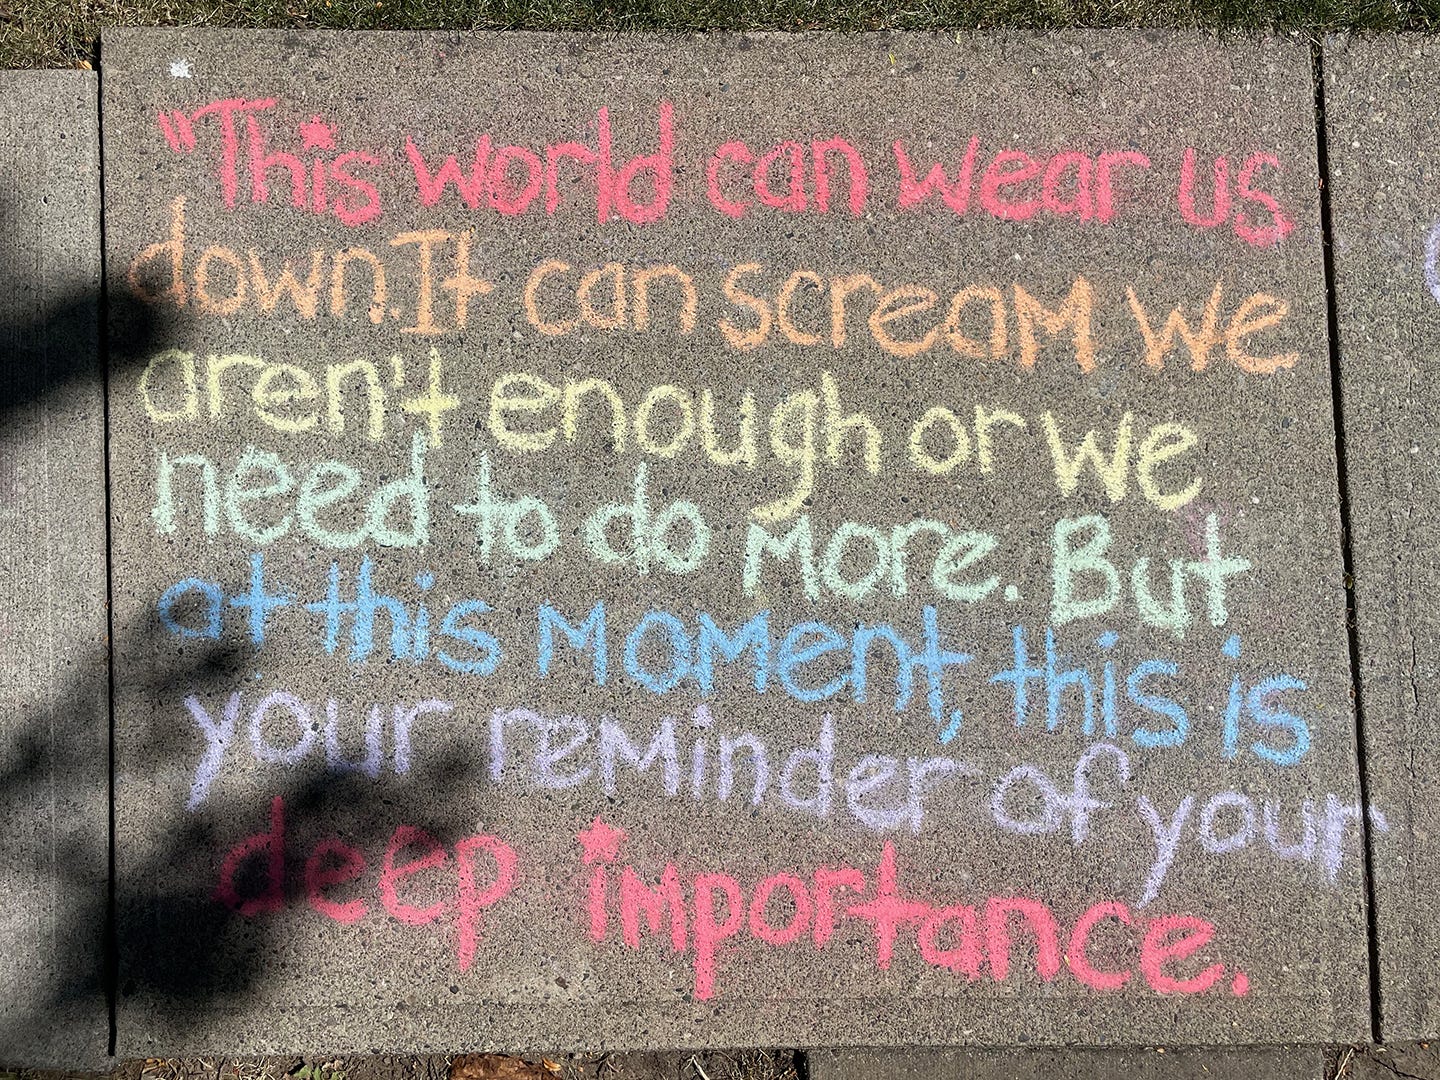 "This world can wear us
down. It can scream we
aren't enough or we
need to do more. But
at this moment, this is
your reminder of your
deep importance.